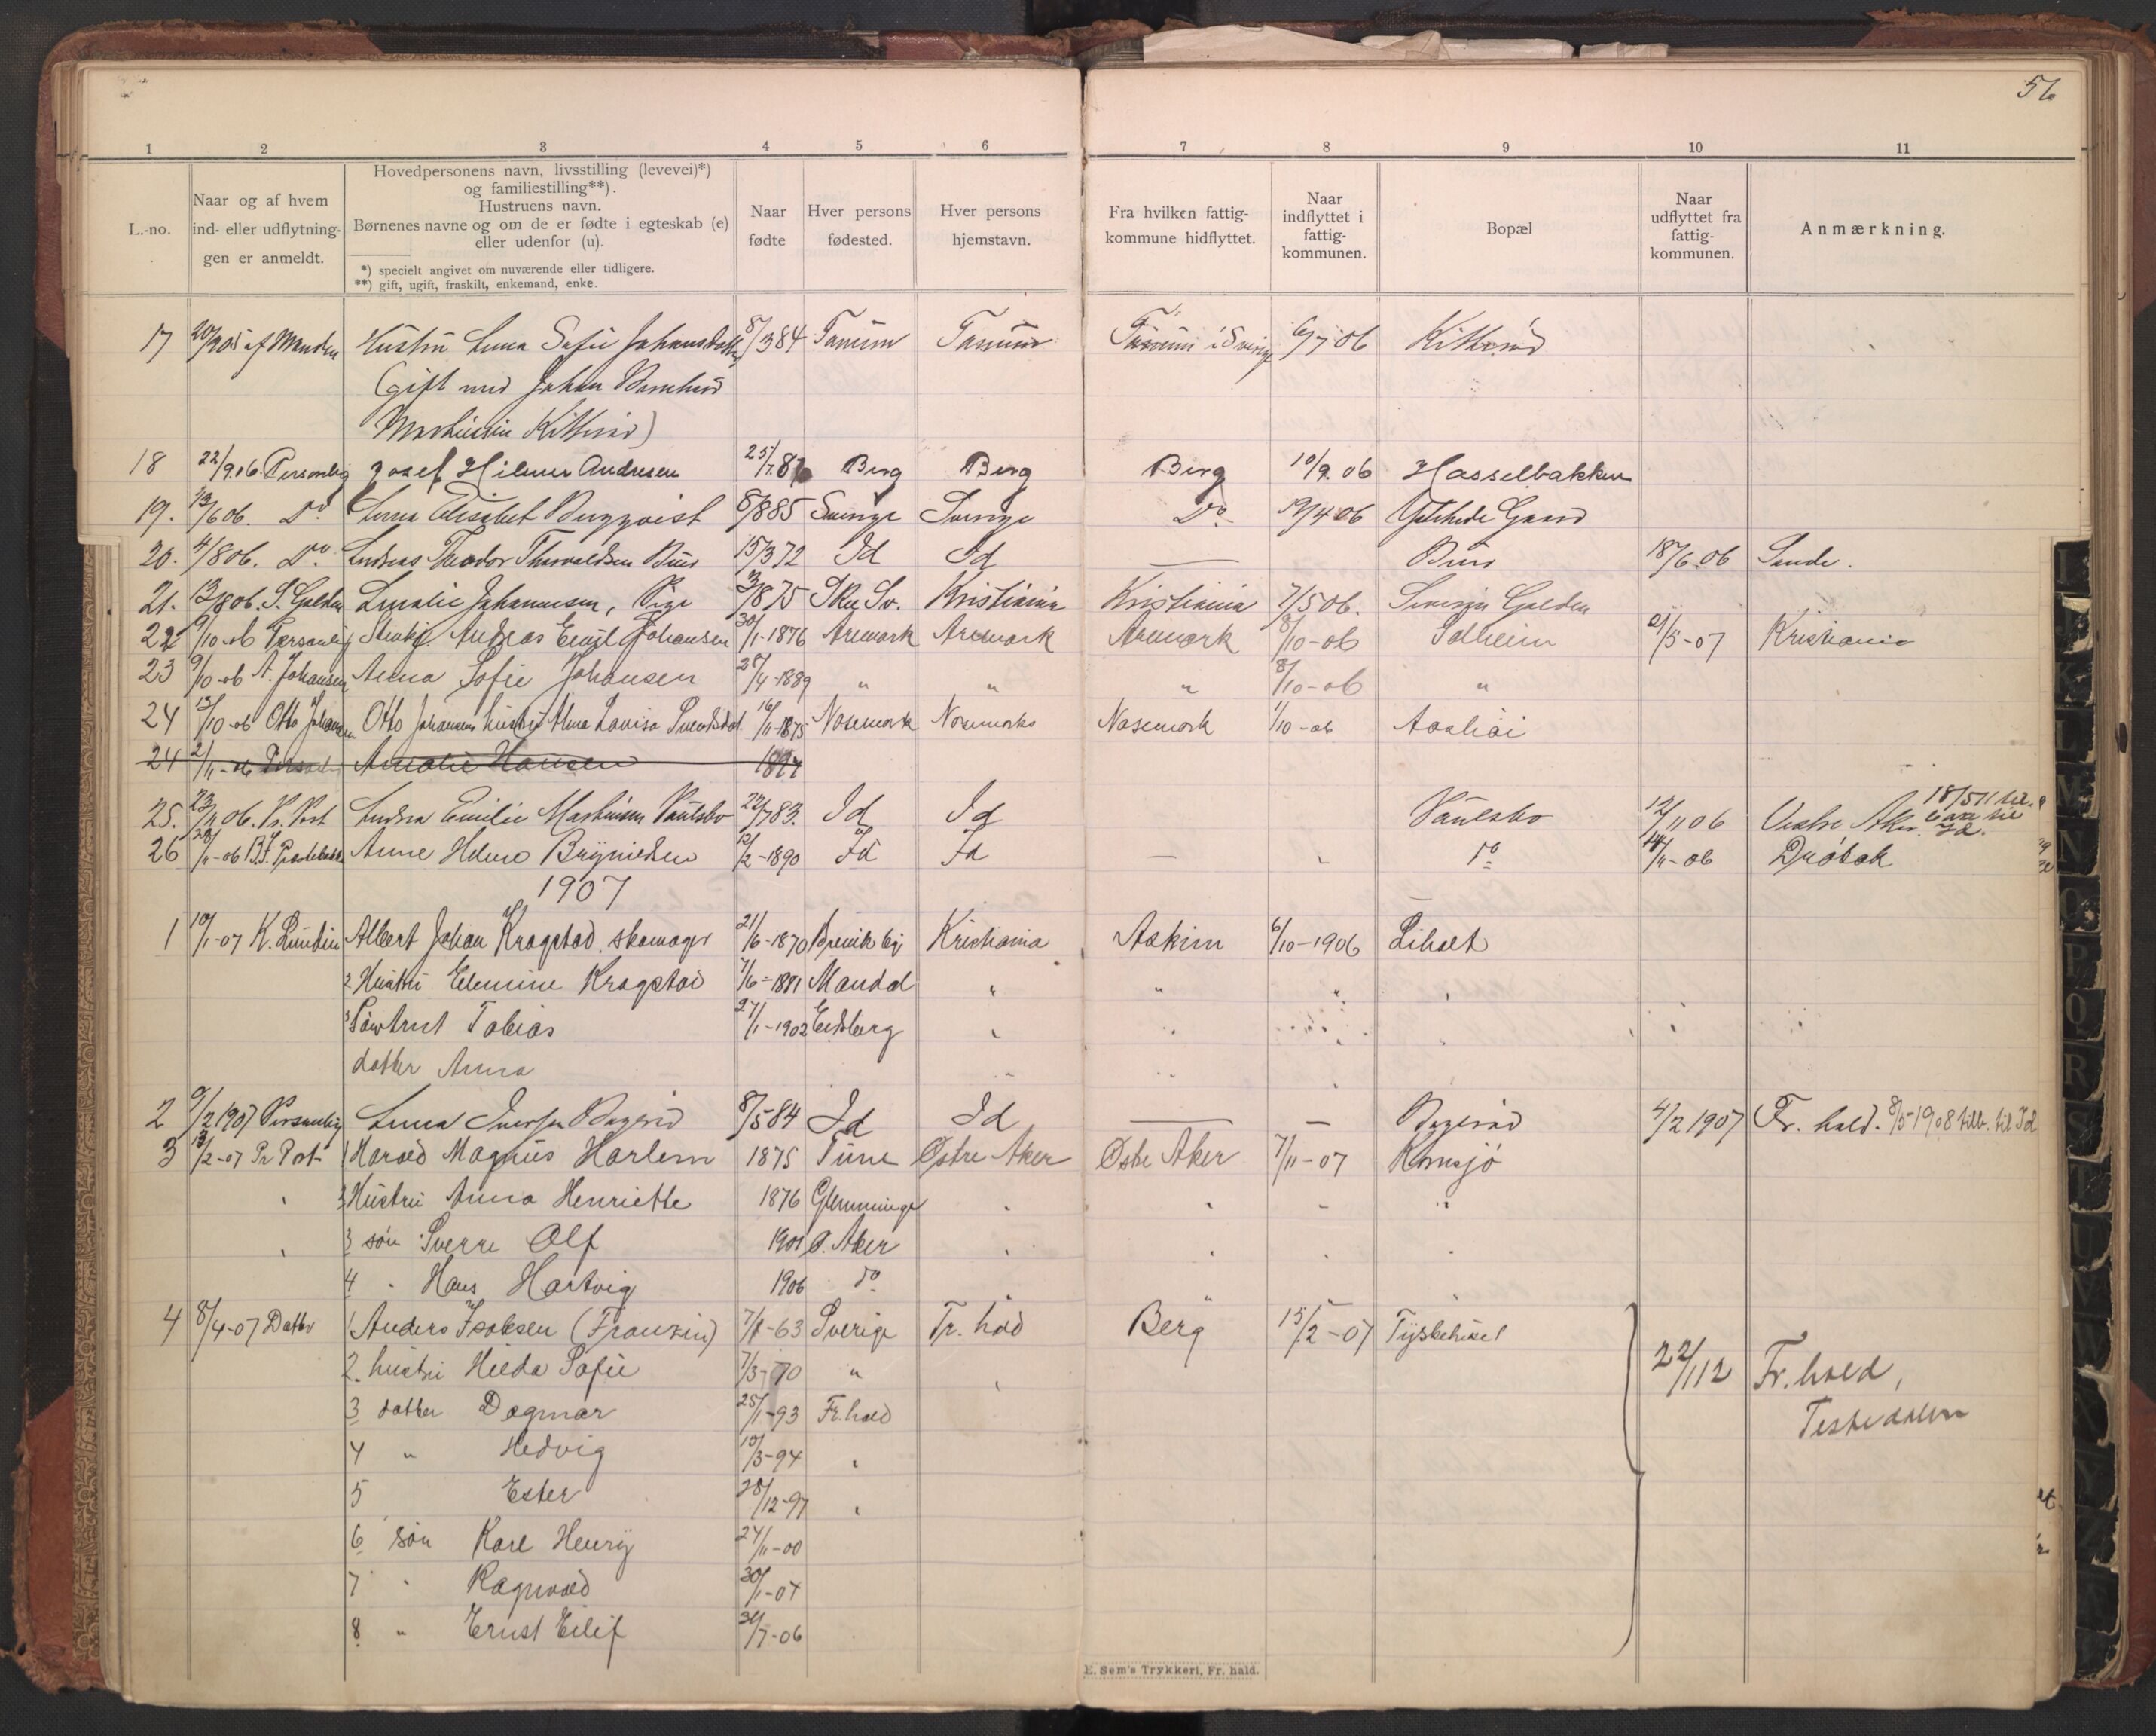 56
1 2 3 4 5 6 7 8 9 10 11
L.-no.
Naar og af hvem
ind- eller udflytning-
gen er anmeldt.
Hovedpersonens navn, livsstilling (levevei)*)
og familiestilling**).
Hustruens navn.
Børnenes navne og om de er fødte i egteskab (e)
eller udenfor (u).
*) specielt angivet om nuværende eller tidligere.
**) gift, ugift, fraskilt, enkemand, enke.
Naar
fødte
Hver persons
fødested.
Hver persons
hjemstavn.
Fra hvilken fattig-
kommune hidflyttet.
Naar
indflyttet i
fattig-
kommunen.
Bopæl
Naar
udflyttet fra
fattig-
kommunen.
Anmærkning.
17 af Manden Hustru Anna Sofie Johansdatter 8/3 84 Tanum Tanum Tanum i Sverige 6/7 06 Kitterød
(gift med Johan Bernhard
Mathiesen Kitterød)
18 22/9.06. Personlig Josef Hilmer Andresen 25/7.87 Berg Berg Berg 10/9.06 Hasselbakken
19. 13/6 06. Do. Anna Elisabet Bergqvist 6/8 85 Sverige Sverige Do. 19/4 06 Gaard
20. 4/8 06. Do. Andreas Theodor Thorvaldsen Buer 15/3 72 Id Id — Buer 18/6 06 Sande.
21. 13/8 06. S. Galden Amalie Johannesen, Pige 3/8 75 Skee Sv. Kristiania Kristiania 7/5 06. Severin Galden
22 9/10-06 Personlig Stenhg. Andreas Emil Johansen 30/1-1876 Aremark Aremark Aremark 8/10-06 Solheim 21/5-07 Kristiania
23 9/10-06 A. Johansen Anna Sofie Johansen 28/4-1889 " " " 8/10-06 "
24 13/10-06 Otto Johansen Otto Johansens hustru Alma Lovisa Svendsdat. 16/11-1875 Nosemark Nosemark Nosemark 1/10-06 Aashøi
24 2/11-06 Personlig Amalie Hansen 1894
25. 23/11 06. Pr. Post Andrea Emilie Mathisen Paulsbo 22/7 83. Id Id Paulsbo 12/11 06 Vestre Aker. 18/5 11 til
Id.
26 28/11-06 B.F. Anne Helene Brynildsen 12/2-1890 Id Id — " do 14/11-06 Drøbak
1907
1 10/1-07 K. Lundin Albert Johan Kragstad skomager 21/6-1870 Brevik by Kristiania Askim 6/10-1906 Liholt
2 Hustru Elemine Kragstad 7/6-1881 Mandal " "
3 Tobias 27/1-1902 Eidsberg " "
datter Anna
2 9/2 1907 Personlig Anna Iversen Bøgerød 8/5 84 Id Id — — Bøgerød 4/2 1907 Fr. hald. 8/5 1908 tilb. til Id
3 13/2-07 Pr Post 1 Harald Magnus Harlem 1875 Tune Østre Aker Østre Aker 7/11-07 Kornsjø
" 2 Hustru Anna Henriette 1876 Glemminge " " " "
" 3 søn Sverre Olf 1901 Ø. Aker " " " "
4 " Hans Hartvig 1906 do
4 8/4-07 Datter 1 Anders Isaksen (Franzén) 7/8-63 Sverige Fr. hald Berg 15/2-07 Tyskehuset
2. hustru Hilda Sofie 7/3-70 " "
22/1 12 Fr. hald,
3 datter Dagmar 25/1-93 Fr. hald
Testedalen
4 " Hedvig 15/3-94 "
5 Ester 28/12-97 "
6 søn Karl Henry 24/11-00
7 " Ragnvald 30/1-04
8 " Ernst Eilif 31/7-06
E. Sem's Trykkeri, Fr. hald.